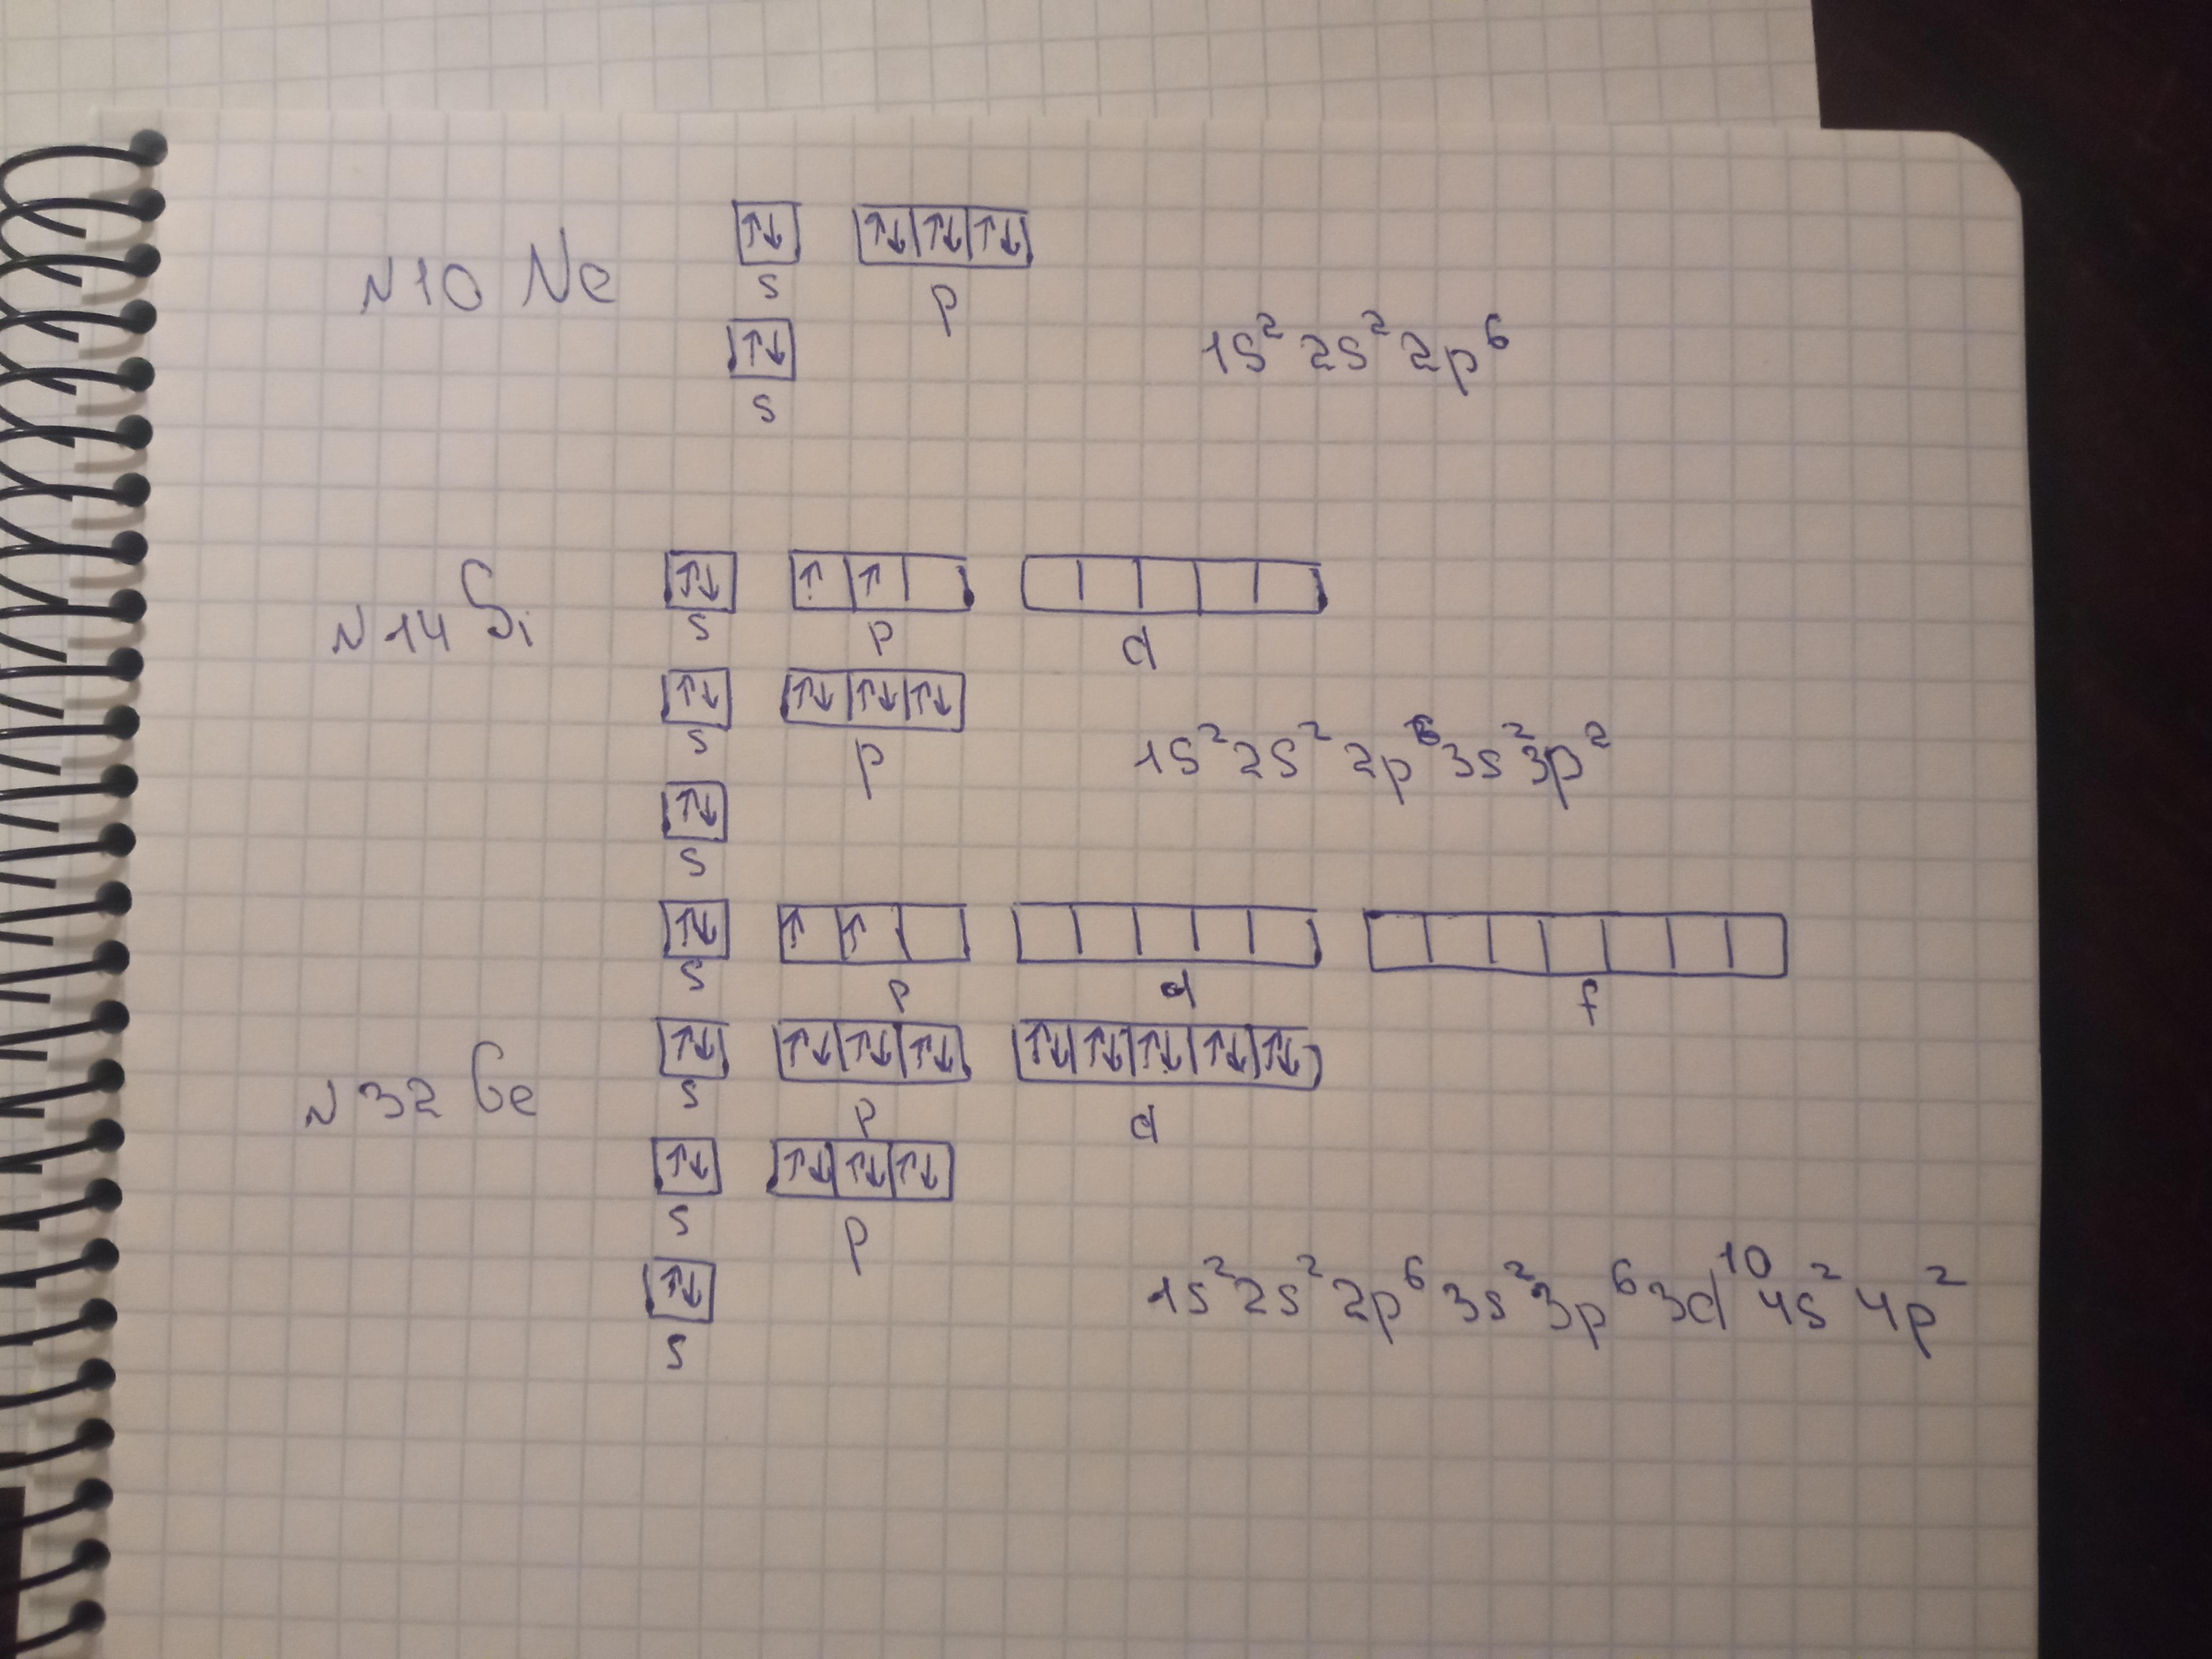 ↑↓ ↑↓ ↑↓ ↑↓
N10 Ne s p
↑↓ 1s² 2s² 2p⁶
s
↑↓ ↑ ↑
N14 Si s p d
↑↓ ↑↓ ↑↓ ↑↓
s p 1s² 2s² 2p⁶ 3s² 3p²
↑↓
s
↑↓ ↑ ↑
s p d f
↑↓ ↑↓ ↑↓ ↑↓ ↑↓ ↑↓ ↑↓ ↑↓ ↑↓
N32 Ge s p d
↑↓ ↑↓ ↑↓ ↑↓
s p
↑↓ 1s² 2s² 2p⁶ 3s² 3p⁶ 3d¹⁰ 4s² 4p²
s